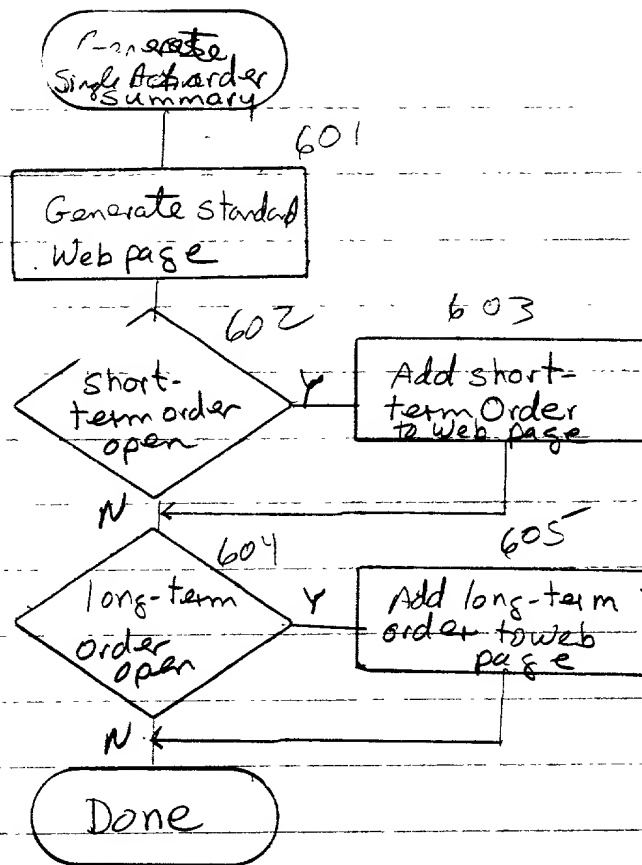 Generate
Single Action order
Summary
601
Generate standard
Web page
602
short-
term order
open
Y
603
Add short-
term Order
to Web page
N
604
long-term
order
open
Y
605
Add long-term
order to web
page
N
Done